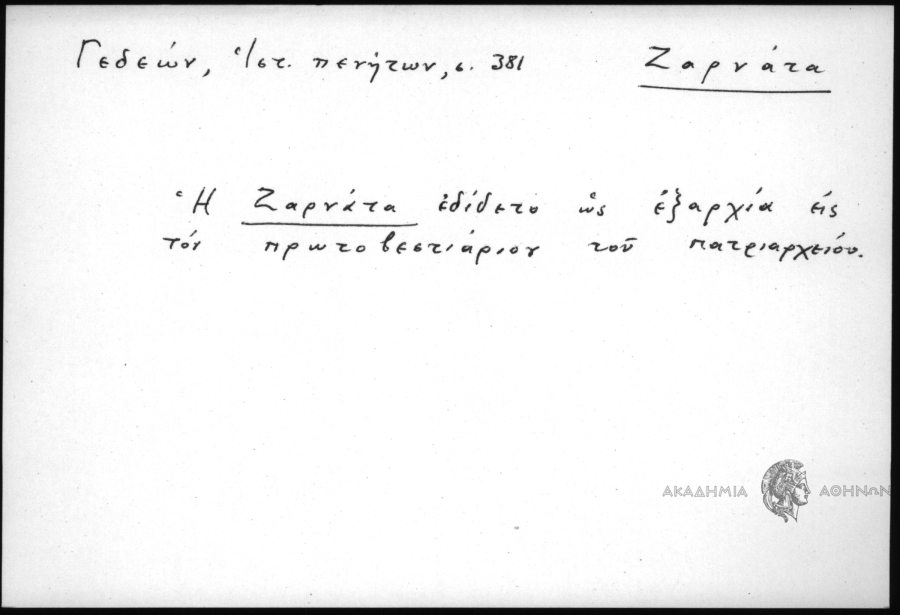 Γεδεών, Ἱστ. πενήτων, σ. 381 Ζαρνάτα
Ἡ Ζαρνάτα ἐδίδετο ὡς ἐξαρχία εἰς
τόν πρωτοβεστιάριον τοῦ πατριαρχείου.
ΑΚΑΔΗΜΙΑ ΑΘΗΝΩΝ